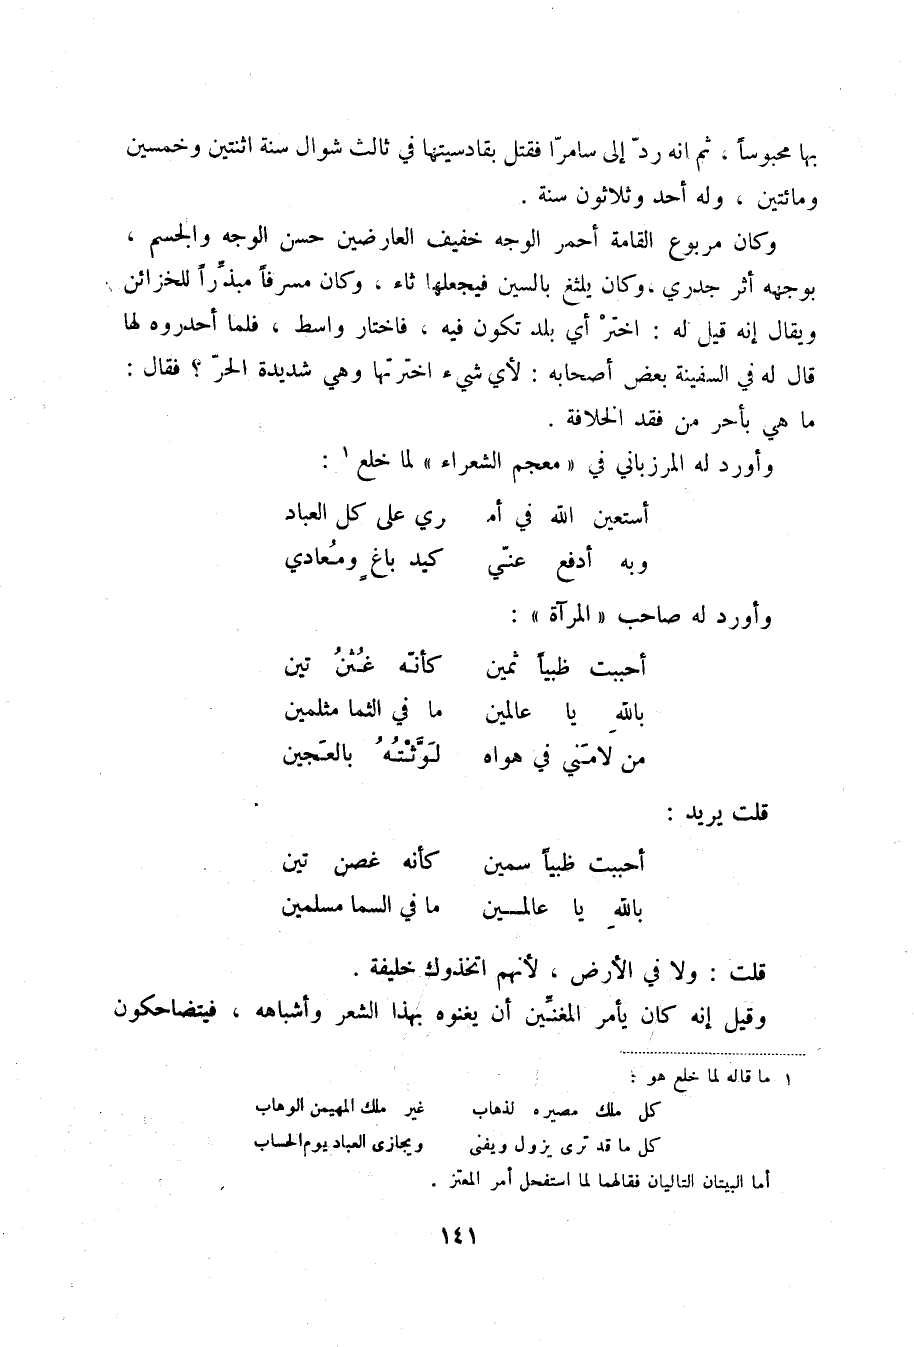 بها محبوساً ، ثم انه ردّ إلى سامرّا فقتل بقادسيتها في ثالث شوال سنة اثنتين وخمسين
ومائتين ، وله أحد وثلاثون سنة .
وكان مربوع القامة أحمر الوجه خفيف العارضين حسن الوجه والجسم ،
بوجهه أثر جدري ، وكان يلثغ بالسين فيجعلها ثاء ، وكان مسرفاً مبذِّراً للخزائن .
ويقال إنه قيل له : اخترْ أي بلد تكون فيه ، فاختار واسط ، فلما أحدروه لها
قال له في السفينة بعض أصحابه : لأي شيء اخترتها وهي شديدة الحرّ ؟ فقال :
ما هي بأحر من فقد الخلافة .
وأورد له المرزباني في « معجم الشعراء » لما خلع ١ :
أستعين الله في أمـ ري على كل العباد
وبه أدفع عنّي كيد باغٍ ومُعادي
وأورد له صاحب « المرآة » :
أحببت ظبياً ثمين كأنّه غُثْنُ تين
باللهِ يا عالمين ما في الثما مثلمين
من لامَني في هواه لَوَّثْتُهُ بالعَجين
قلت يريد :
أحببت ظبياً سمين كأنه غصن تين
باللهِ يا عالمـين ما في السما مسلمين
قلت : ولا في الأرض ، لأنهم اتخذوك خليفة .
وقيل إنه كان يأمر المغنِّين أن يغنوه بهذا الشعر وأشباهه ، فيتضاحكون
١ ما قاله لما خلع هو :
كل ملك مصيره لذهاب غير ملك المهيمن الوهاب
كل ما قد ترى يزول ويفنى ويجازى العباد يوم الحساب
أما البيتان التاليان فقالهما لما استفحل أمر المعتز .
١٤١